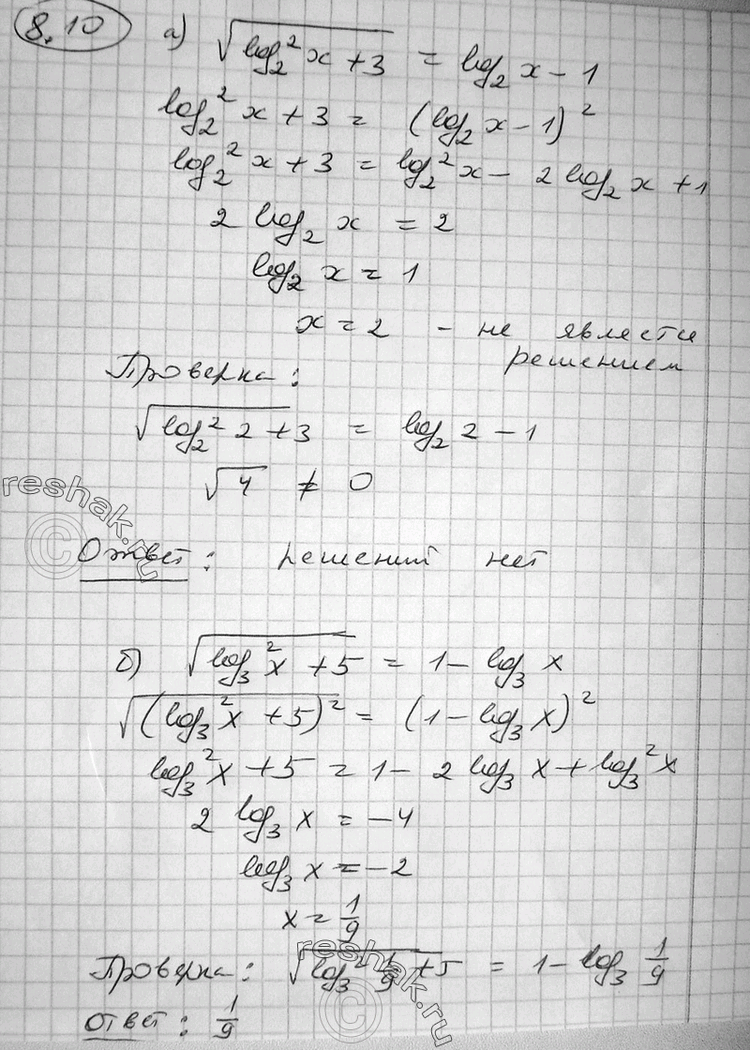 8.10
а) √(log₂²x + 3) = log₂x − 1
log₂²x + 3 = (log₂x − 1)²
log₂²x + 3 = log₂²x − 2log₂x + 1
2 log₂x = 2
log₂x = 1
x = 2 - не являсти
решением
Проверка:
√(log₂²2 + 3) = log₂2 − 1
√4 ≠ 0
reshak.ru
©
Ответ: решений нет
б) √(log₃²x + 5) = 1 − log₃x
√(log₃²x + 5)² = (1 − log₃x)²
log₃²x + 5 = 1 − 2log₃x + log₃²x
2 log₃x = −4
log₃x = −2
x = 1/9
Проверка: √(log₃² 1/9 + 5) = 1 − log₃ 1/9
Ответ: 1/9
reshak.ru
©